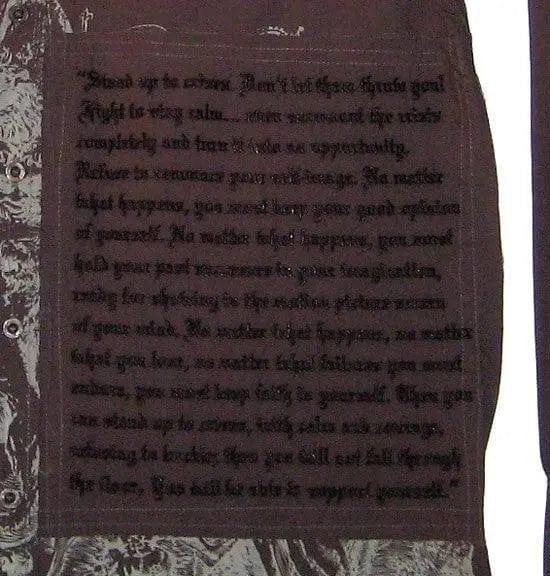 "Stand up to crises. Don't let them throw you!
Fight to stay calm... even surmount the crisis
completely and turn it into an opportunity.
Refuse to renounce your self-image. No matter
what happens, you must keep your good opinion
of yourself. No matter what happens, you must
hold your past successes in your imagination,
ready for showing in the motion picture screen
of your mind. No matter what happens, no matter
what you lose, no matter what failures you must
endure, you must keep faith in yourself. Then you
can stand up to crises, with calm and courage,
refusing to buckle; then you will not fall through
the floor. You will be able to support yourself."